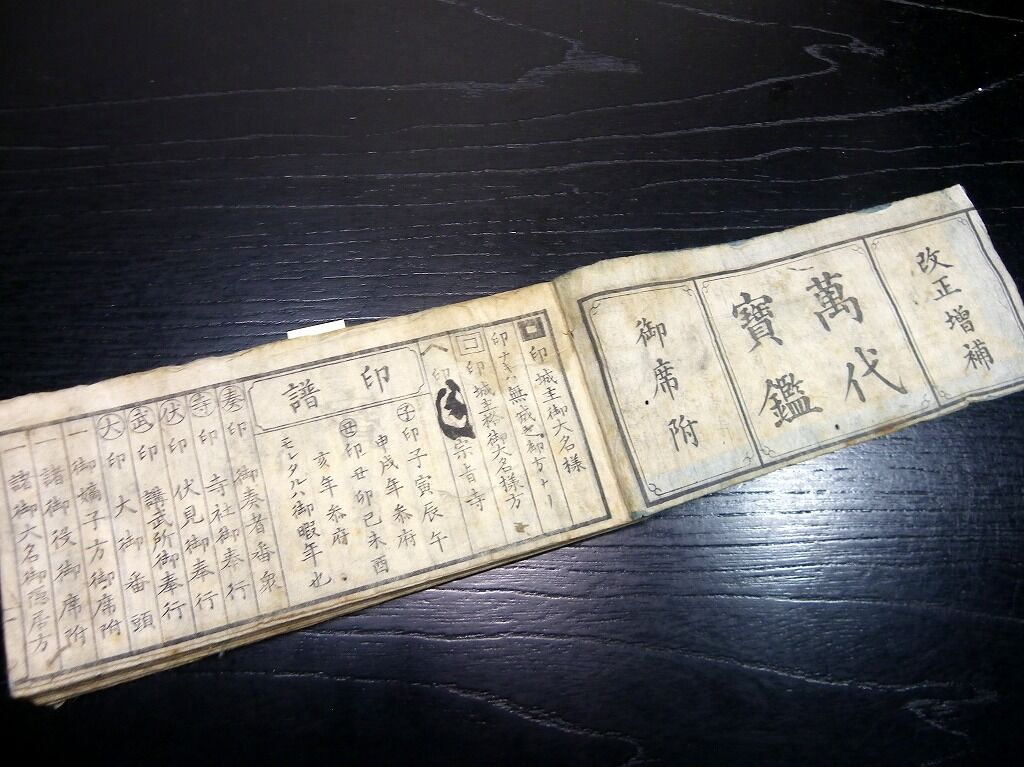 改正増補
萬代
寶鑑
御席附
印城主御大名様
印ナキハ無城之御方ナリ
印城主格御大名様方
印
宗旨寺
印譜
子印子寅辰午
申戌年参府
丑印丑卯巳未酉
亥年参府
モシクルハ御暇年也
奏印御奏者番衆
寺印寺社御奉行
伏印伏見御奉行
武印講武所御奉行
大印大御番頭
一御嫡子方御席附
一諸御役御席附
一諸御大名御隠居方